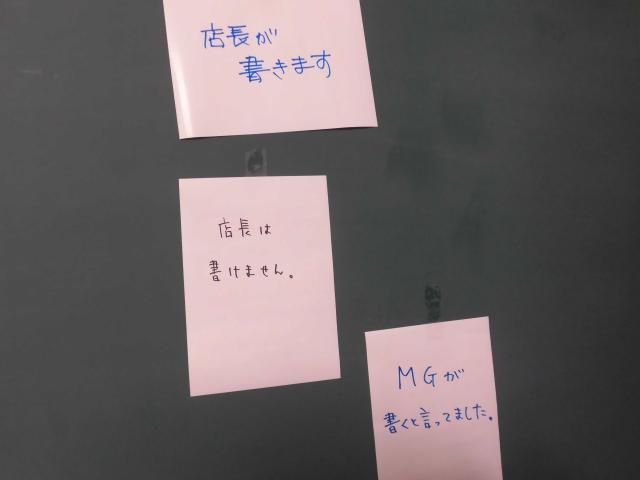 店長が
書きます
店長は
書けません。
MGが
書くと言ってました。